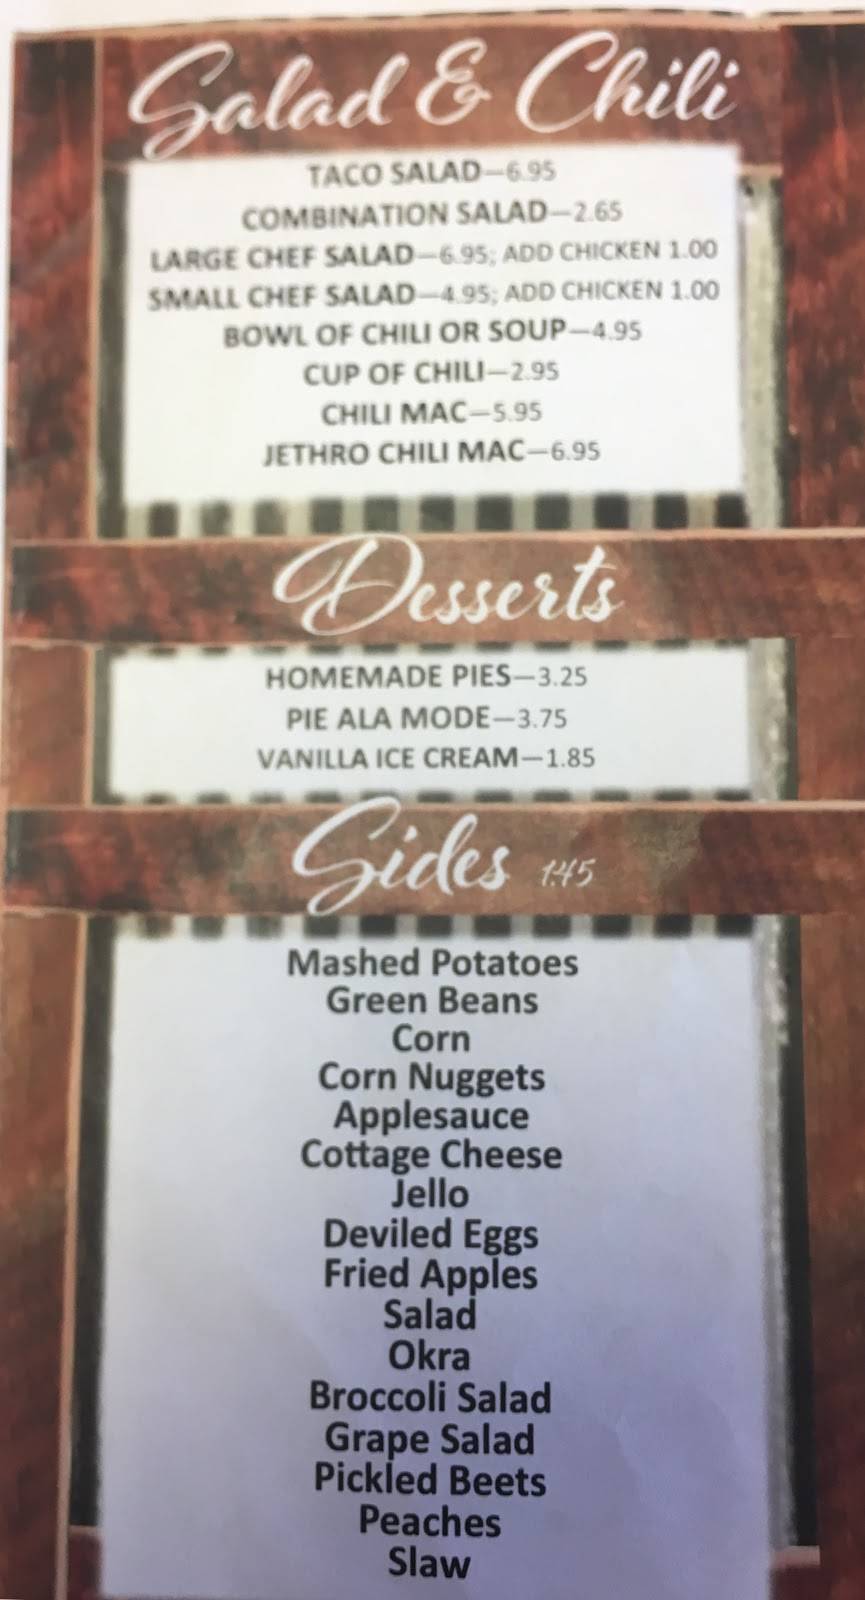 Salad & Chili
TACO SALAD—6.95
COMBINATION SALAD—2.65
LARGE CHEF SALAD—6.95; ADD CHICKEN 1.00
SMALL CHEF SALAD—4.95; ADD CHICKEN 1.00
BOWL OF CHILI OR SOUP—4.95
CUP OF CHILI—2.95
CHILI MAC—5.95
JETHRO CHILI MAC—6.95
Desserts
HOMEMADE PIES—3.25
PIE ALA MODE—3.75
VANILLA ICE CREAM—1.85
Sides 1.45
Mashed Potatoes
Green Beans
Corn
Corn Nuggets
Applesauce
Cottage Cheese
Jello
Deviled Eggs
Fried Apples
Salad
Okra
Broccoli Salad
Grape Salad
Pickled Beets
Peaches
Slaw